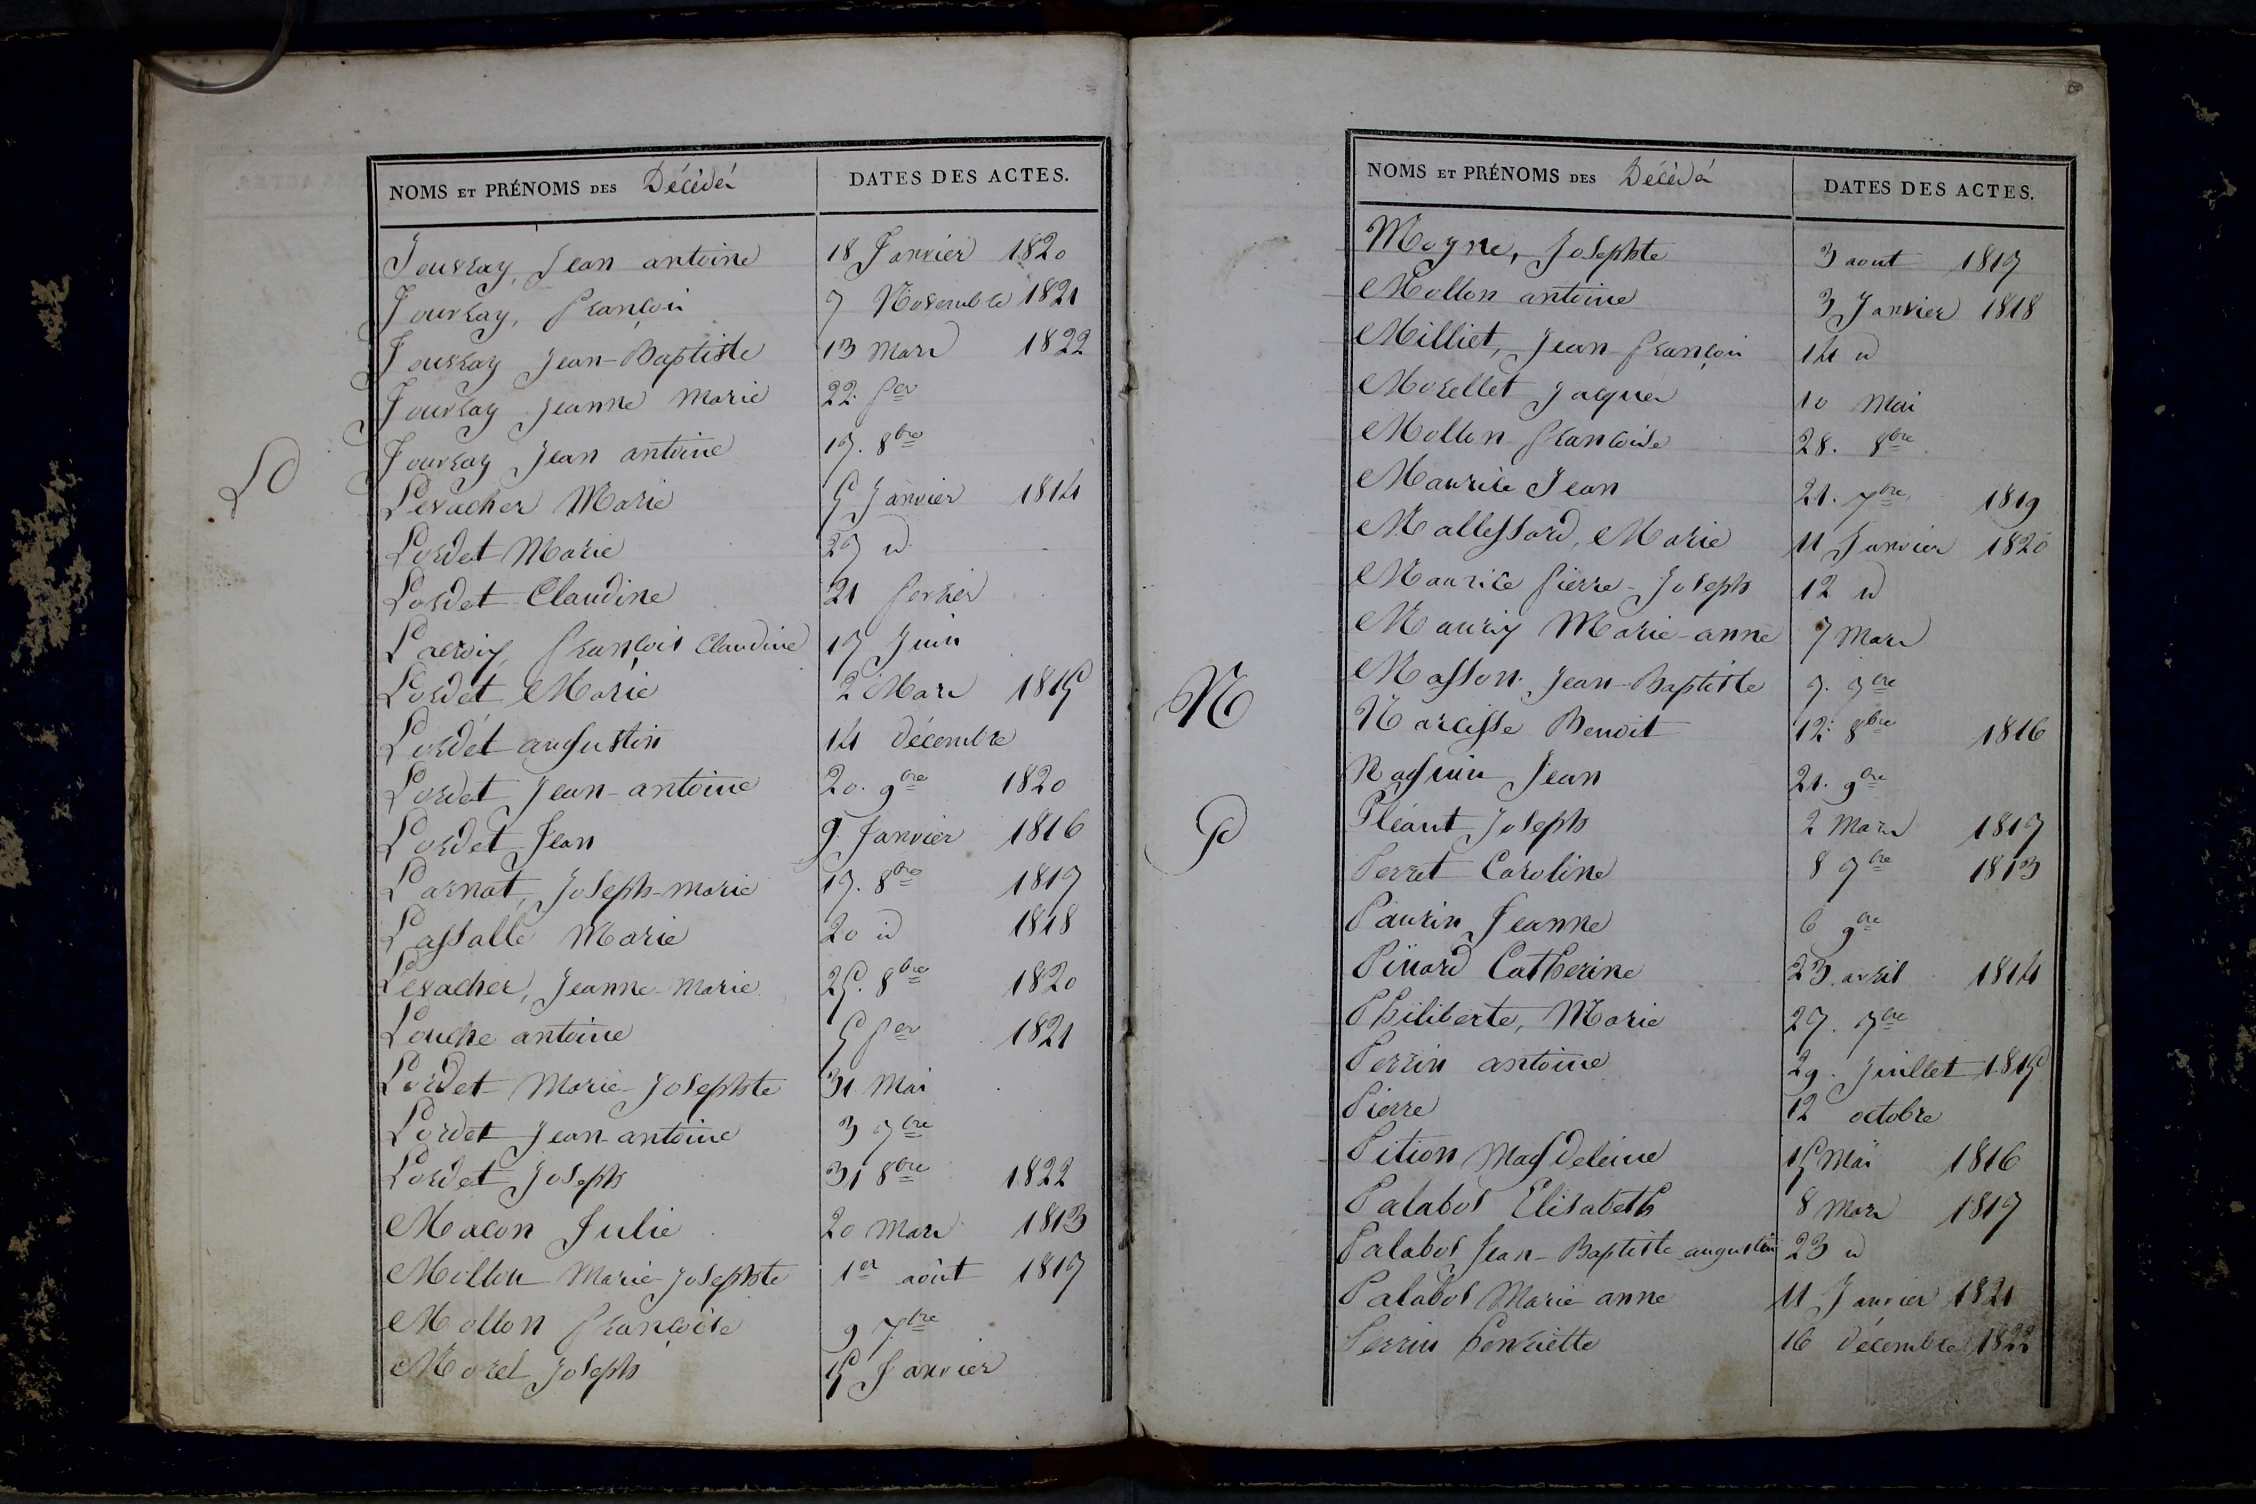 NOMS ET PRÉNOMS DES Décédés
DATES DES ACTES.
Jourray, Jean antoine 18 Janvier 1820
Jourray, françois 7 Novembre 1821
Jourray Jean-Baptiste 13 Mars 1822
Jourray Jeanne Marie 22. fer
Jourray Jean antoine 17. 8bre
L
Levacher Marie 5 Janvier 1814
Lordet Marie 27 id
Lordet Claudine 21 fevrier
Lacroix, françois Claudine 17 Juin
Lordet Marie 2 Mars 1815
Lordet augustin 14 décembre
Lordet Jean-antoine 20. 9bre 1820
Lordet Jean 9 Janvier 1816
Larnat, Joseph-marie 17. 8bre 1817
Lassalle Marie 20 id 1818
Levacher, Jeanne-Marie 25. 8bre 1820
Louche antoine 5 fer 1821
Lordet Marie-Josephte 31 Mai
Lordet Jean-antoine 3 7bre
Lordet Joseph 31 8bre 1822
Macon Julie 20 Mars 1813
Mollon Marie-Josephte 1er août 1817
Mollon françoise 9 7bre
Morel Joseph 15 Janvier
NOMS ET PRÉNOMS DES Décédés
DATES DES ACTES.
Moyne, Josephte 3 aout 1817
Mollon antoine 3 Janvier 1818
Milliet, Jean-françois 14 id
Morellet Jacques 10 Mai
Mollon françoise 28. 8bre
Maurice Jean 21. 7bre 1819
Mallessard, Marie 11 Janvier 1820
Maurice Pierre-Joseph 12 id
Maurix Marie-anne 7 Mars
Masson Jean-Baptiste 7. 7bre
N
Narcisse Benoit 12. 8bre 1816
Naguin Jean 21. 9bre
P
Pléant Joseph 2 Mars 1817
Perret Caroline 8 7bre 1813
Paurin Jeanne 6 9bre
Pinard Catherine 23 avril 1814
Philiberte, Marie 27. 7bre
Perrin antoine 29. Juillet 1815
Pierre 12 octobre
Pition Magdeleine 15 Mai 1816
Palabos Elisabeth 8 Mars 1817
Palabos Jean-Baptiste augustin 23 id
Palabos Marie anne 11 Janvier 1821
Perrin henriette 16 décembre 1822